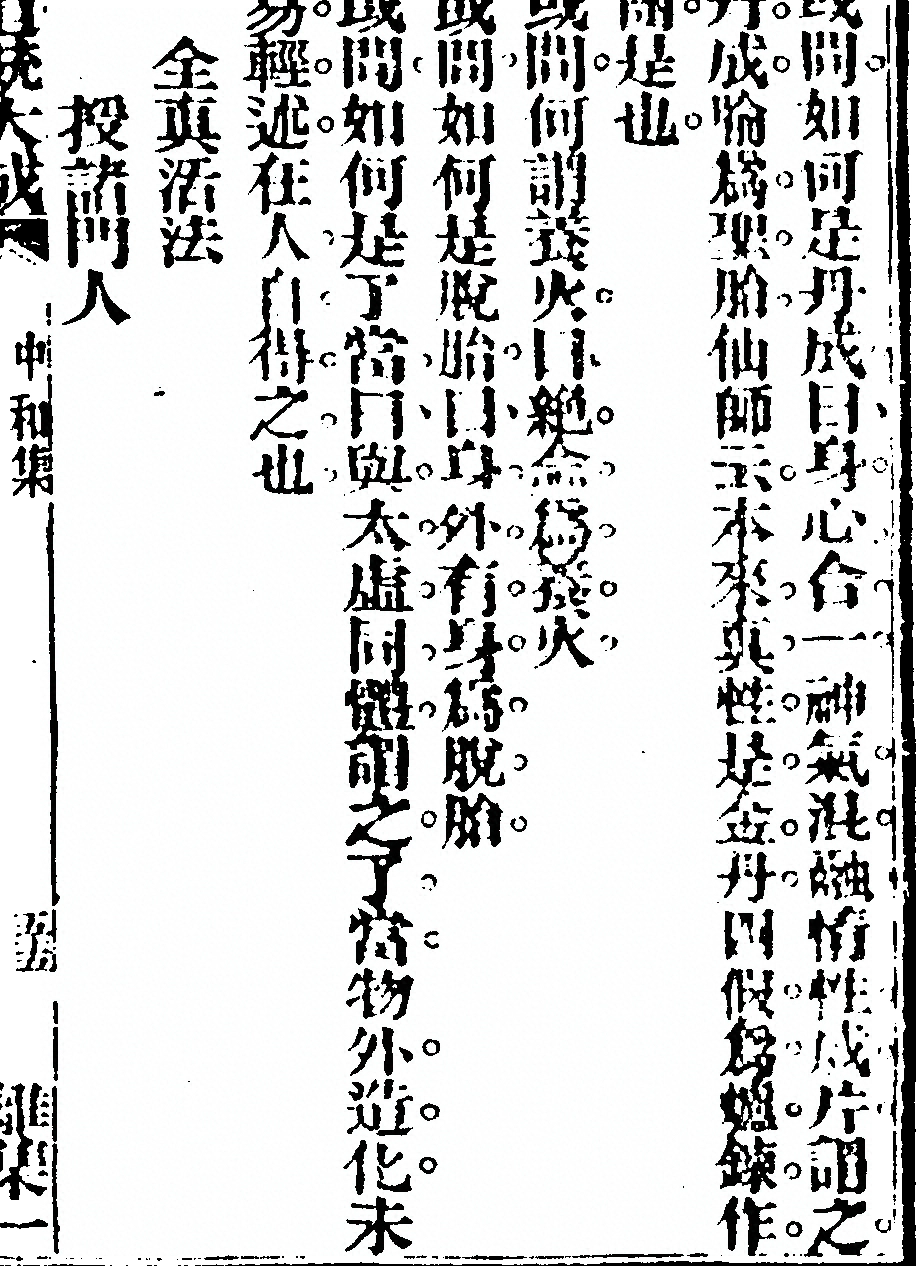 或問如何是丹成曰身心合一神氣混融情性成片謂之
丹成喻爲聖胎仙師云本來真性是金丹四假爲爐鍊作
團是也
或問何謂養火曰絕念爲養火
或問如何是脫胎曰身外有身爲脫胎
或問如何是了當曰與太虛同體謂之了當物外造化未
易輕述在人自得之也
全真活法
授諸門人
大成 中和集 五 集一